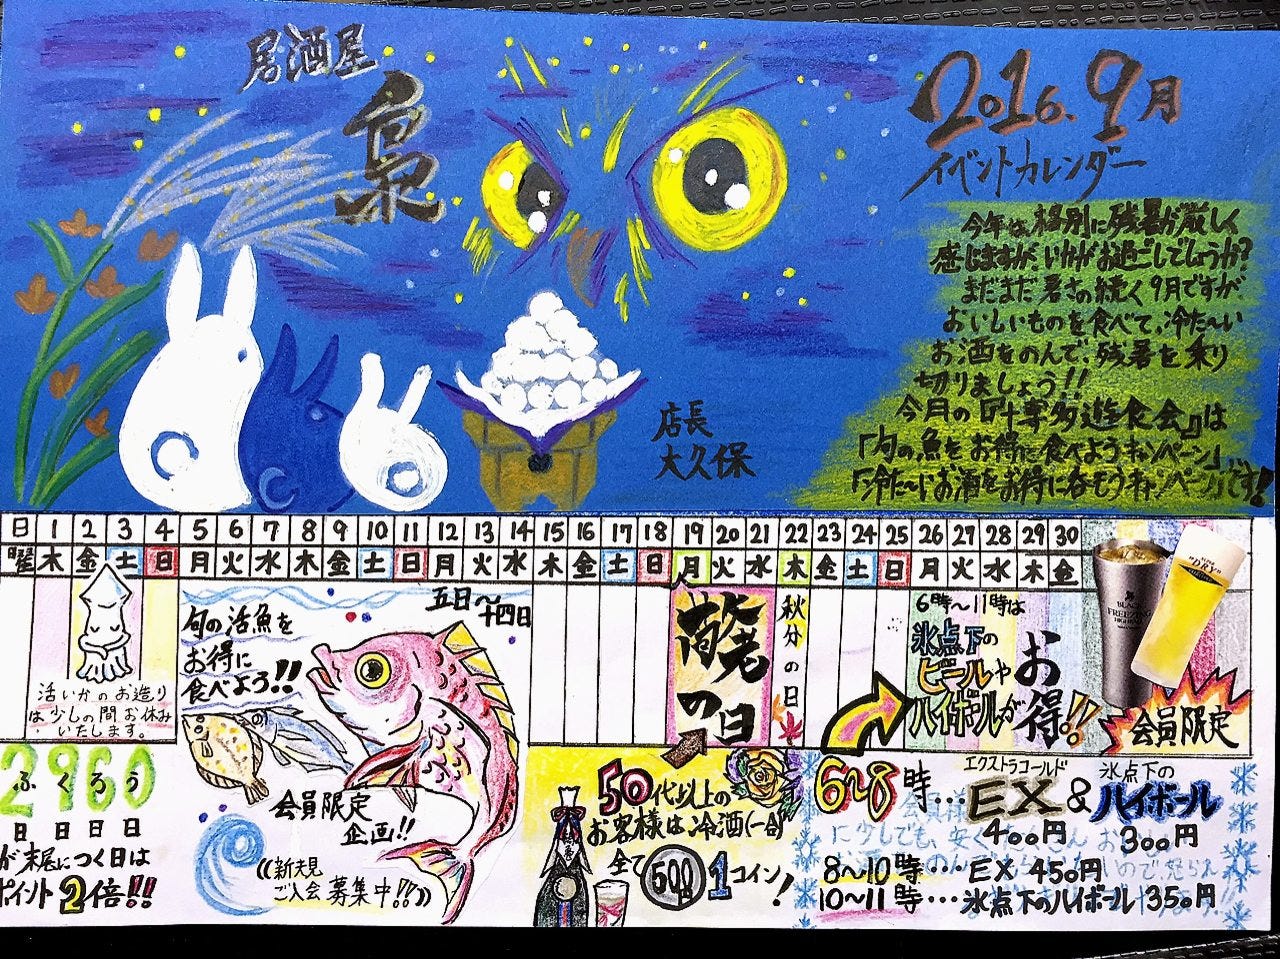 居酒屋
梟
2016.9月
イベントカレンダー
今年は格別に残暑が厳しく
感じますが、いかがお過ごしでしょうか?
まだまだ暑さの続く9月ですが、
おいしいものを食べて、冷た〜い
お酒をのんで、残暑を乗り
切りましょう!!
今月の『叶博多遊食会』は
「旬の魚をお得に食べようキャンペーン」
「冷た〜いお酒をお得に呑もうキャンペーン」です!
店長
大久保
日 1 2 3 4 5 6 7 8 9 10 11 12 13 14 15 16 17 18 19 20 21 22 23 24 25 26 27 28 29 30
曜 木 金 土 日 月 火 水 木 金 土 日 月 火 水 木 金 土 日 月 火 水 木 金 土 日 月 火 水 木 金
活いかのお造り
は少しの間お休み
いたします。
五日〜十四日
旬の活魚を
お得に
食べよう!!
会員限定
企画!!
((新規
ご入会募集中!!))
敬老の日
秋分の日
6時〜11時は
氷点下の
ビールや
ハイボールが
お得!!
BLACK
FREEZING
HIGHBALL
会員限定
2960
ふくろう
日日日日
が末尾につく日は
ポイント2倍!!
50代以上の
お客様は冷酒(一合)
全て500円1コイン!
6〜8時…
エクストラコールド
EX
400円
&
氷点下の
ハイボール
300円
8〜10時… EX 450円
10〜11時… 氷点下のハイボール 350円